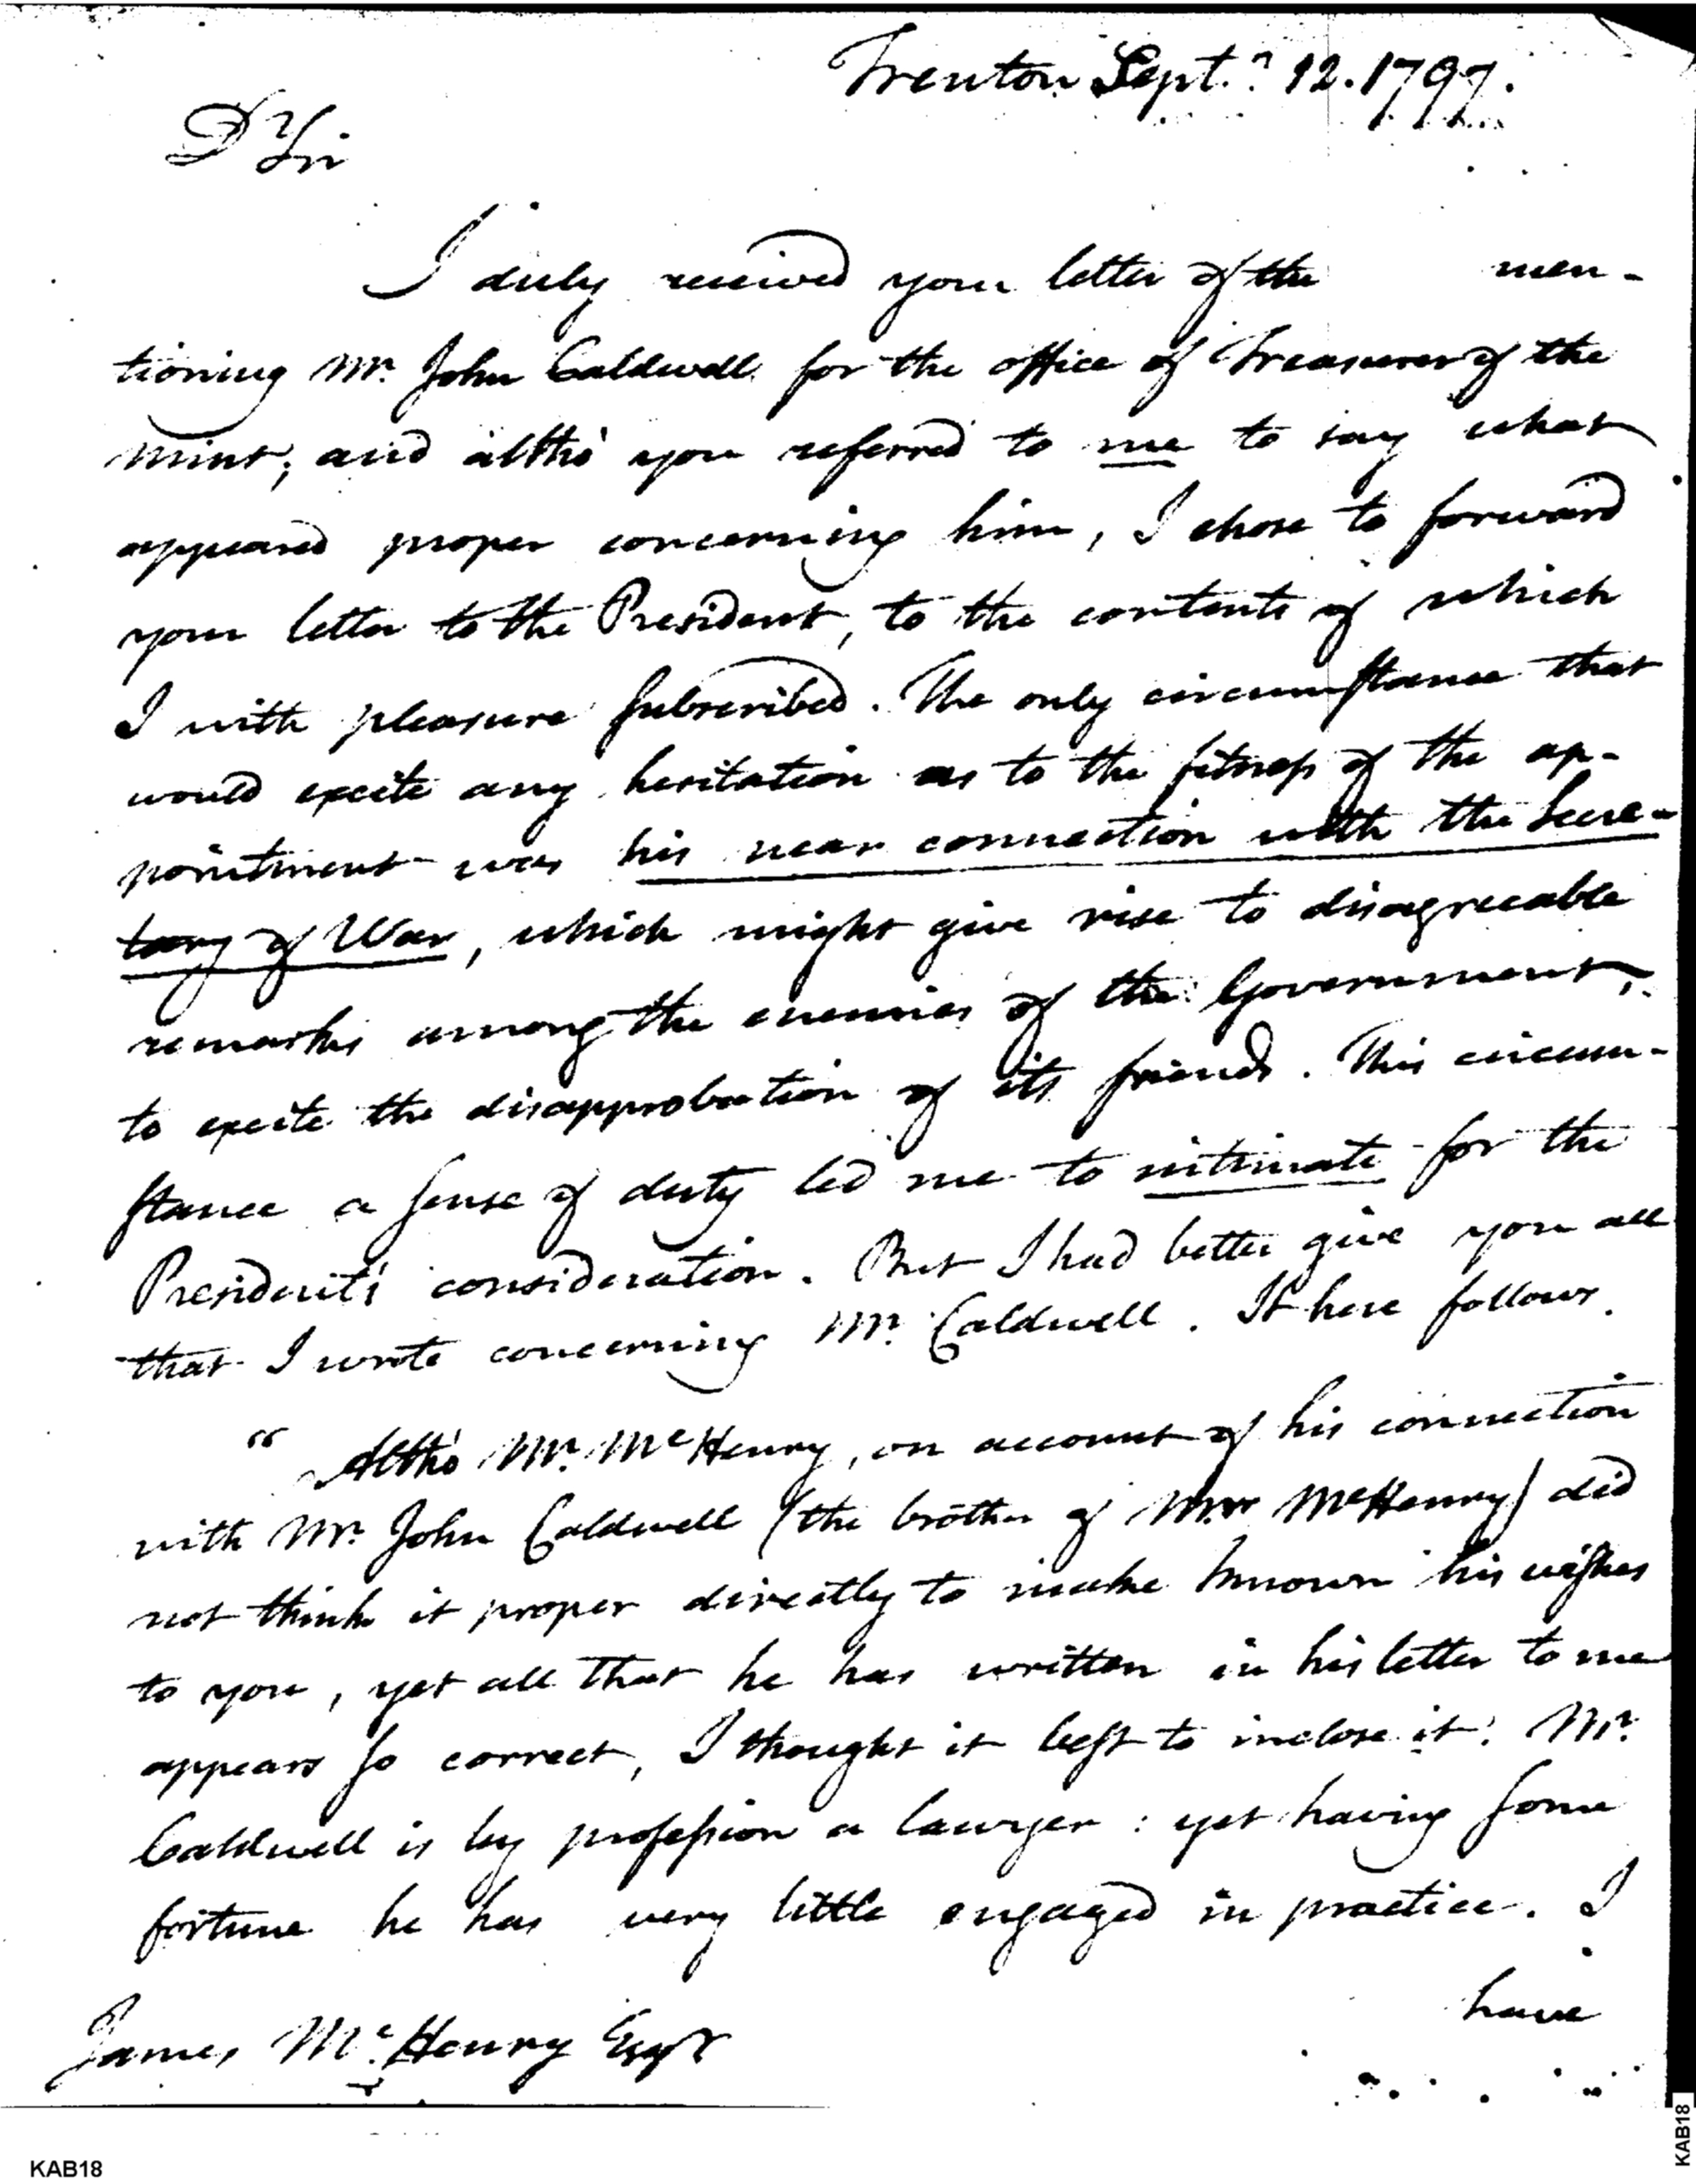 Trenton Septr. 12. 1797.
Dr Sir
I duly received your letter of the men-
tioning Mr. John Caldwell for the office of Treasurer of the
mint; and altho' you referred to me to say what
appeared proper concerning him, I chose to forward
your letter to the President, to the contents of which
I with pleasure subscribed. The only circumstance that
would excite any hesitation as to the fitness of the ap-
pointment was his near connection with the Secre-
tary of War, which might give rise to disagreeable
remarks among the enemies of the Government,
to excite the disapprobation of its friends. This circum-
stance a sense of duty led me to intimate for the
President's consideration. But I had better give you all
that I wrote concerning Mr. Caldwell. It here follows.
"Altho' Mr. McHenry, on account of his connection
with Mr. John Caldwell (the brother of Mrs McHenry) did
not think it proper directly to make known his wishes
to you, yet all that he has written in his letter to me
appears so correct, I thought it best to inclose it. Mr.
Caldwell is by profession a lawyer: yet having some
fortune he has very little engaged in practice. I
have
James McHenry Esqr
KAB18
KAB18